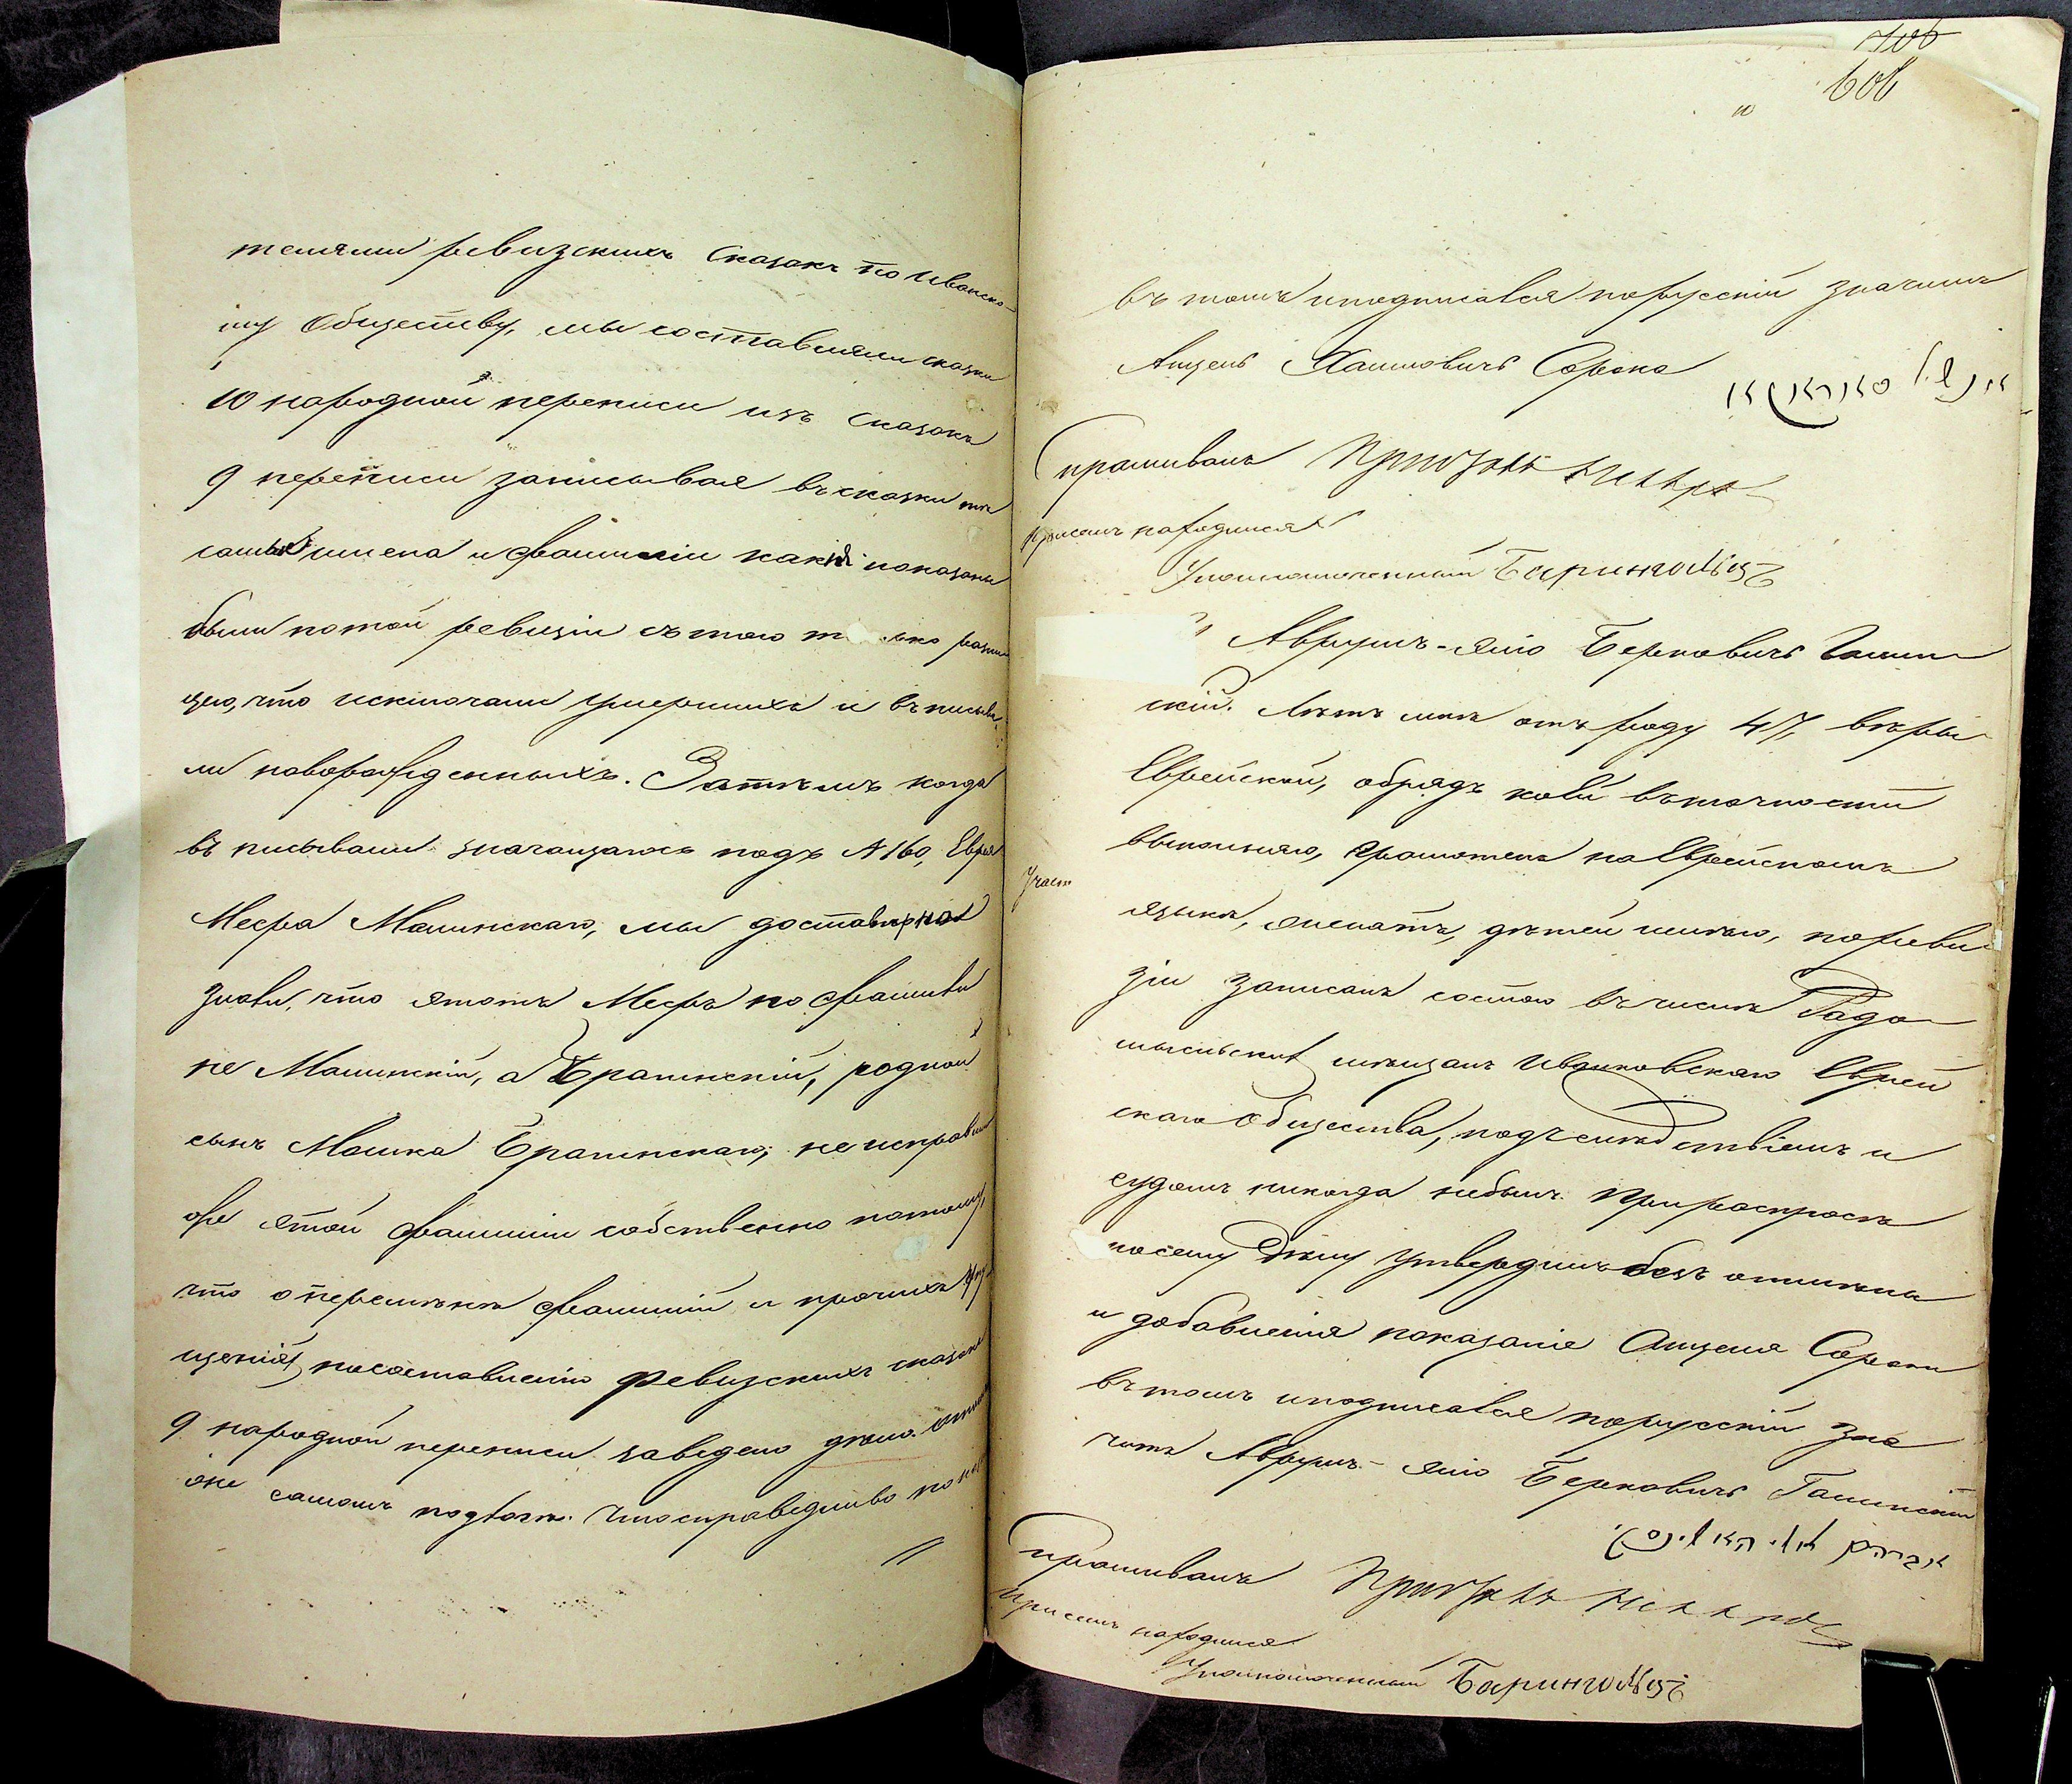 телями ревизскихъ сказокъ по Иванко-
му Обществу, мы составляли сказки
10 народной переписи изъ сказокъ
9 переписи записывая въ сказки тѣ
самые имена и фамиліи какъ показаны
были по той ревизіи съ тою только разни
цею, что исключали умершихъ и въписыва
ли новорожденныхъ. Затѣмъ когда
въписывали значащагося подъ № 160, Еврея
Меера Малинскаго, мы достовѣрно
знали, что этотъ Мееръ по фамиліи
не Малинскій, а Брагинскій, родной
сынъ Мошка Брагинскаго, не исправи
же этой фамиліи собственно потому,
что о перемѣнѣ фамилій и прочихъ упу
щеній по составленію ревизскихъ сказокъ
9 народной переписи заведено дѣло.
самомъ подвохѣ. Что справедливо по
706
606
въ томъ и подписался порусскій значитъ
Анцель Хаимовичъ Сорока
אנשיל סאראקא
Спрашивалъ Приставъ
При семъ находился
Уполномоченный Барингольцъ
Аврумъ-Эліо Берковичъ Галин
скій. Лѣтъ мнѣ отъ роду 47, вѣры
Еврейской, обрядъ коей въ точности
выполняю, грамотенъ на Еврейскомъ
языкѣ, женатъ, дѣтей имѣю, по реви
зіи записанъ состою въ числѣ Радо
мысльскихъ мѣщанъ Иванковскаго Еврей
скаго Общества, подъ слѣдствіемъ и
судомъ никогда небылъ. При распросѣ
по сему дѣлу утвердилъ безъ отмѣны
и добавленія показаніе Анцеля Сороки
въ томъ и подписался порусскій зна
читъ Аврумъ-Эліо Берковичъ Галинскій
אברהם אלי׳ האלינסקי
Спрашивалъ Приставъ
При семъ находился
Уполномоченный Барингольцъ